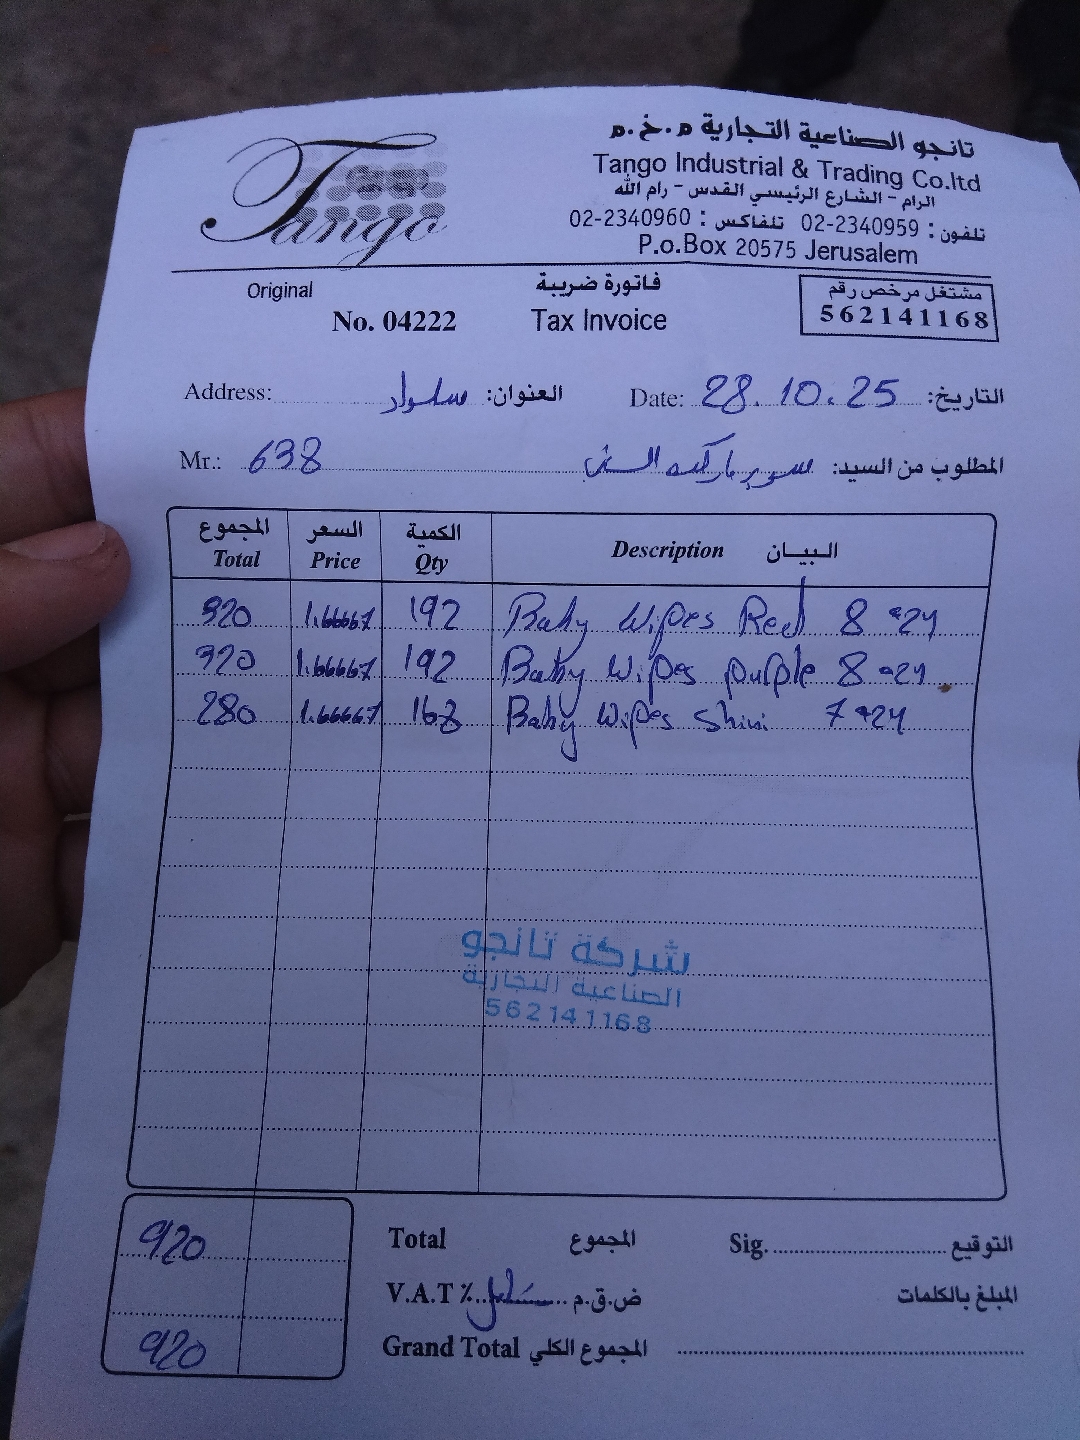 Tango
تانجو الصناعية التجارية م.خ.م
Tango Industrial & Trading Co.ltd
الرام - الشارع الرئيسي القدس - رام الله
تلفون : 02-2340959 تلفاكس : 02-2340960
P.o.Box 20575 Jerusalem
Original
فاتورة ضريبة
مشتغل مرخص رقم
No. 04222
Tax Invoice
562141168
Address: سلواد العنوان:
Date: 28.10.25 التاريخ:
Mr.: 638
المطلوب من السيد: سوبر ماركت
المجموع السعر الكمية البيـــان
Total Price Qty Description
320 1.66667 192 Baby Wipes Red 8 *24
320 1.66667 192 Baby Wipes purple 8 *24
280 1.66667 168 Baby Wipes Shini 7 *24
شركة تانجو
الصناعية التجارية
562141168
920 Total المجموع Sig. التوقيع
V.A.T % ض.ق.م المبلغ بالكلمات
920 Grand Total المجموع الكلي